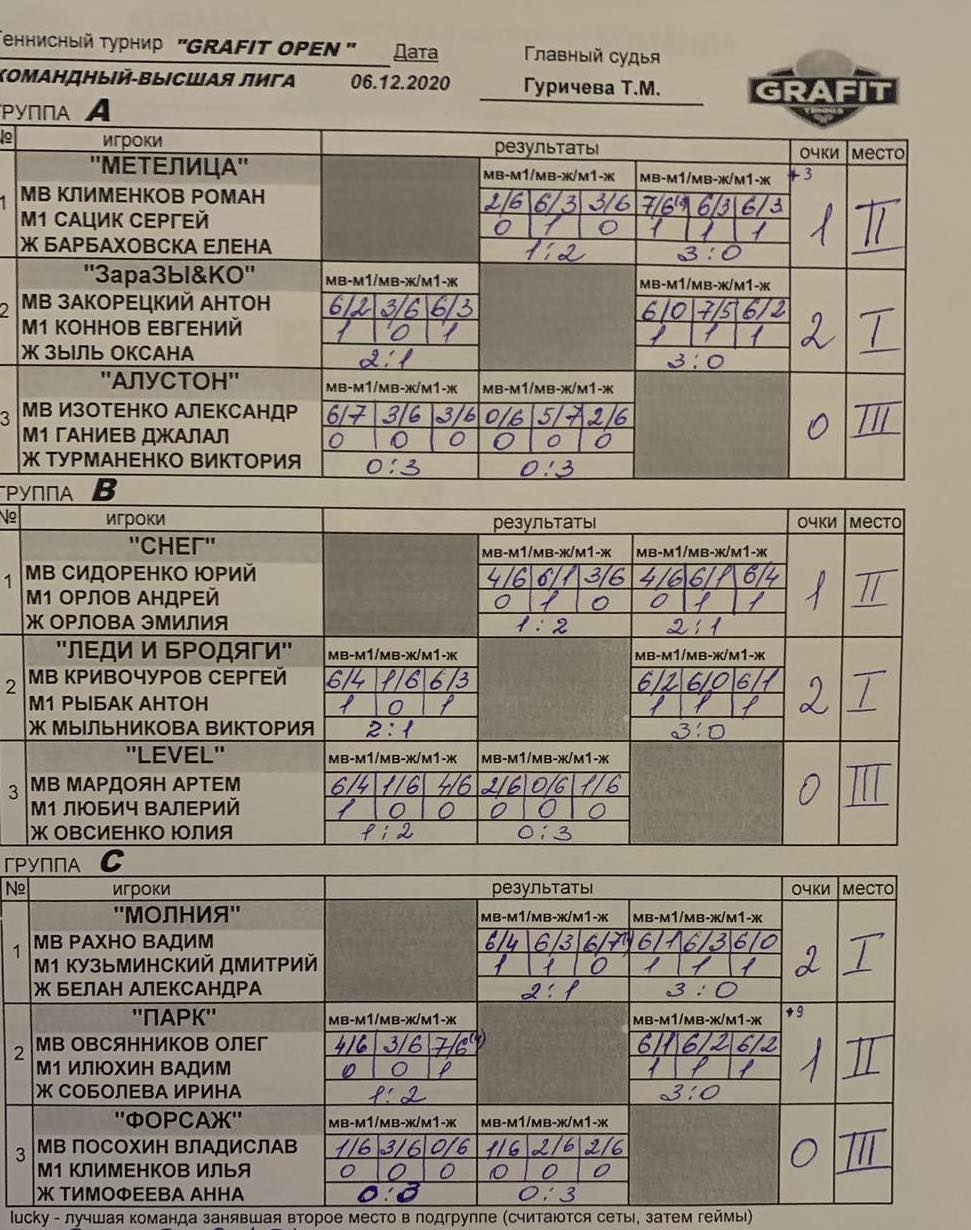 Теннисный турнир "GRAFIT OPEN" Дата Главный судья
КОМАНДНЫЙ-ВЫСШАЯ ЛИГА 06.12.2020 Гуричева Т.М. GRAFIT
ГРУППА А
№ игроки результаты очки место
"МЕТЕЛИЦА" мв-м1/мв-ж/м1-ж мв-м1/мв-ж/м1-ж +3
1 МВ КЛИМЕНКОВ РОМАН 2/6 6/3 3/6 7/6 6/3 6/3 1 II
М1 САЦИК СЕРГЕЙ 0 1 0 1 1 1
Ж БАРБАХОВСКА ЕЛЕНА 1:2 3:0
"ЗараЗЫ&КО" мв-м1/мв-ж/м1-ж мв-м1/мв-ж/м1-ж
2 МВ ЗАКОРЕЦКИЙ АНТОН 6/2 3/6 6/3 6/0 7/5 6/2 2 I
М1 КОННОВ ЕВГЕНИЙ 1 0 1 1 1 1
Ж ЗЫЛЬ ОКСАНА 2:1 3:0
"АЛУСТОН" мв-м1/мв-ж/м1-ж мв-м1/мв-ж/м1-ж
3 МВ ИЗОТЕНКО АЛЕКСАНДР 6/7 3/6 3/6 0/6 5/7 2/6 0 III
М1 ГАНИЕВ ДЖАЛАЛ 0 0 0 0 0 0
Ж ТУРМАНЕНКО ВИКТОРИЯ 0:3 0:3
ГРУППА В
№ игроки результаты очки место
"СНЕГ" мв-м1/мв-ж/м1-ж мв-м1/мв-ж/м1-ж
1 МВ СИДОРЕНКО ЮРИЙ 4/6 6/1 3/6 4/6 6/1 6/4 1 II
М1 ОРЛОВ АНДРЕЙ 0 1 0 0 1 1
Ж ОРЛОВА ЭМИЛИЯ 1:2 2:1
"ЛЕДИ И БРОДЯГИ" мв-м1/мв-ж/м1-ж мв-м1/мв-ж/м1-ж
2 МВ КРИВОЧУРОВ СЕРГЕЙ 6/4 1/6 6/3 6/2 6/0 6/1 2 I
М1 РЫБАК АНТОН 1 0 1 1 1 1
Ж МЫЛЬНИКОВА ВИКТОРИЯ 2:1 3:0
"LEVEL" мв-м1/мв-ж/м1-ж мв-м1/мв-ж/м1-ж
3 МВ МАРДОЯН АРТЕМ 6/4 1/6 4/6 2/6 0/6 1/6 0 III
М1 ЛЮБИЧ ВАЛЕРИЙ 1 0 0 0 0 0
Ж ОВСИЕНКО ЮЛИЯ 1:2 0:3
ГРУППА С
№ игроки результаты очки место
"МОЛНИЯ" мв-м1/мв-ж/м1-ж мв-м1/мв-ж/м1-ж
1 МВ РАХНО ВАДИМ 6/4 6/3 6/7 6/1 6/3 6/0 2 I
М1 КУЗЬМИНСКИЙ ДМИТРИЙ 1 1 0 1 1 1
Ж БЕЛАН АЛЕКСАНДРА 2:1 3:0
"ПАРК" мв-м1/мв-ж/м1-ж мв-м1/мв-ж/м1-ж +9
2 МВ ОВСЯННИКОВ ОЛЕГ 4/6 3/6 7/6(4) 6/1 6/2 6/2 1 II
М1 ИЛЮХИН ВАДИМ 0 0 1 1 1 1
Ж СОБОЛЕВА ИРИНА 1:2 3:0
"ФОРСАЖ" мв-м1/мв-ж/м1-ж мв-м1/мв-ж/м1-ж
3 МВ ПОСОХИН ВЛАДИСЛАВ 1/6 3/6 0/6 1/6 2/6 2/6 0 III
М1 КЛИМЕНКОВ ИЛЬЯ 0 0 0 0 0 0
Ж ТИМОФЕЕВА АННА 0:3 0:3
lucky - лучшая команда занявшая второе место в подгруппе (считаются сеты, затем геймы)